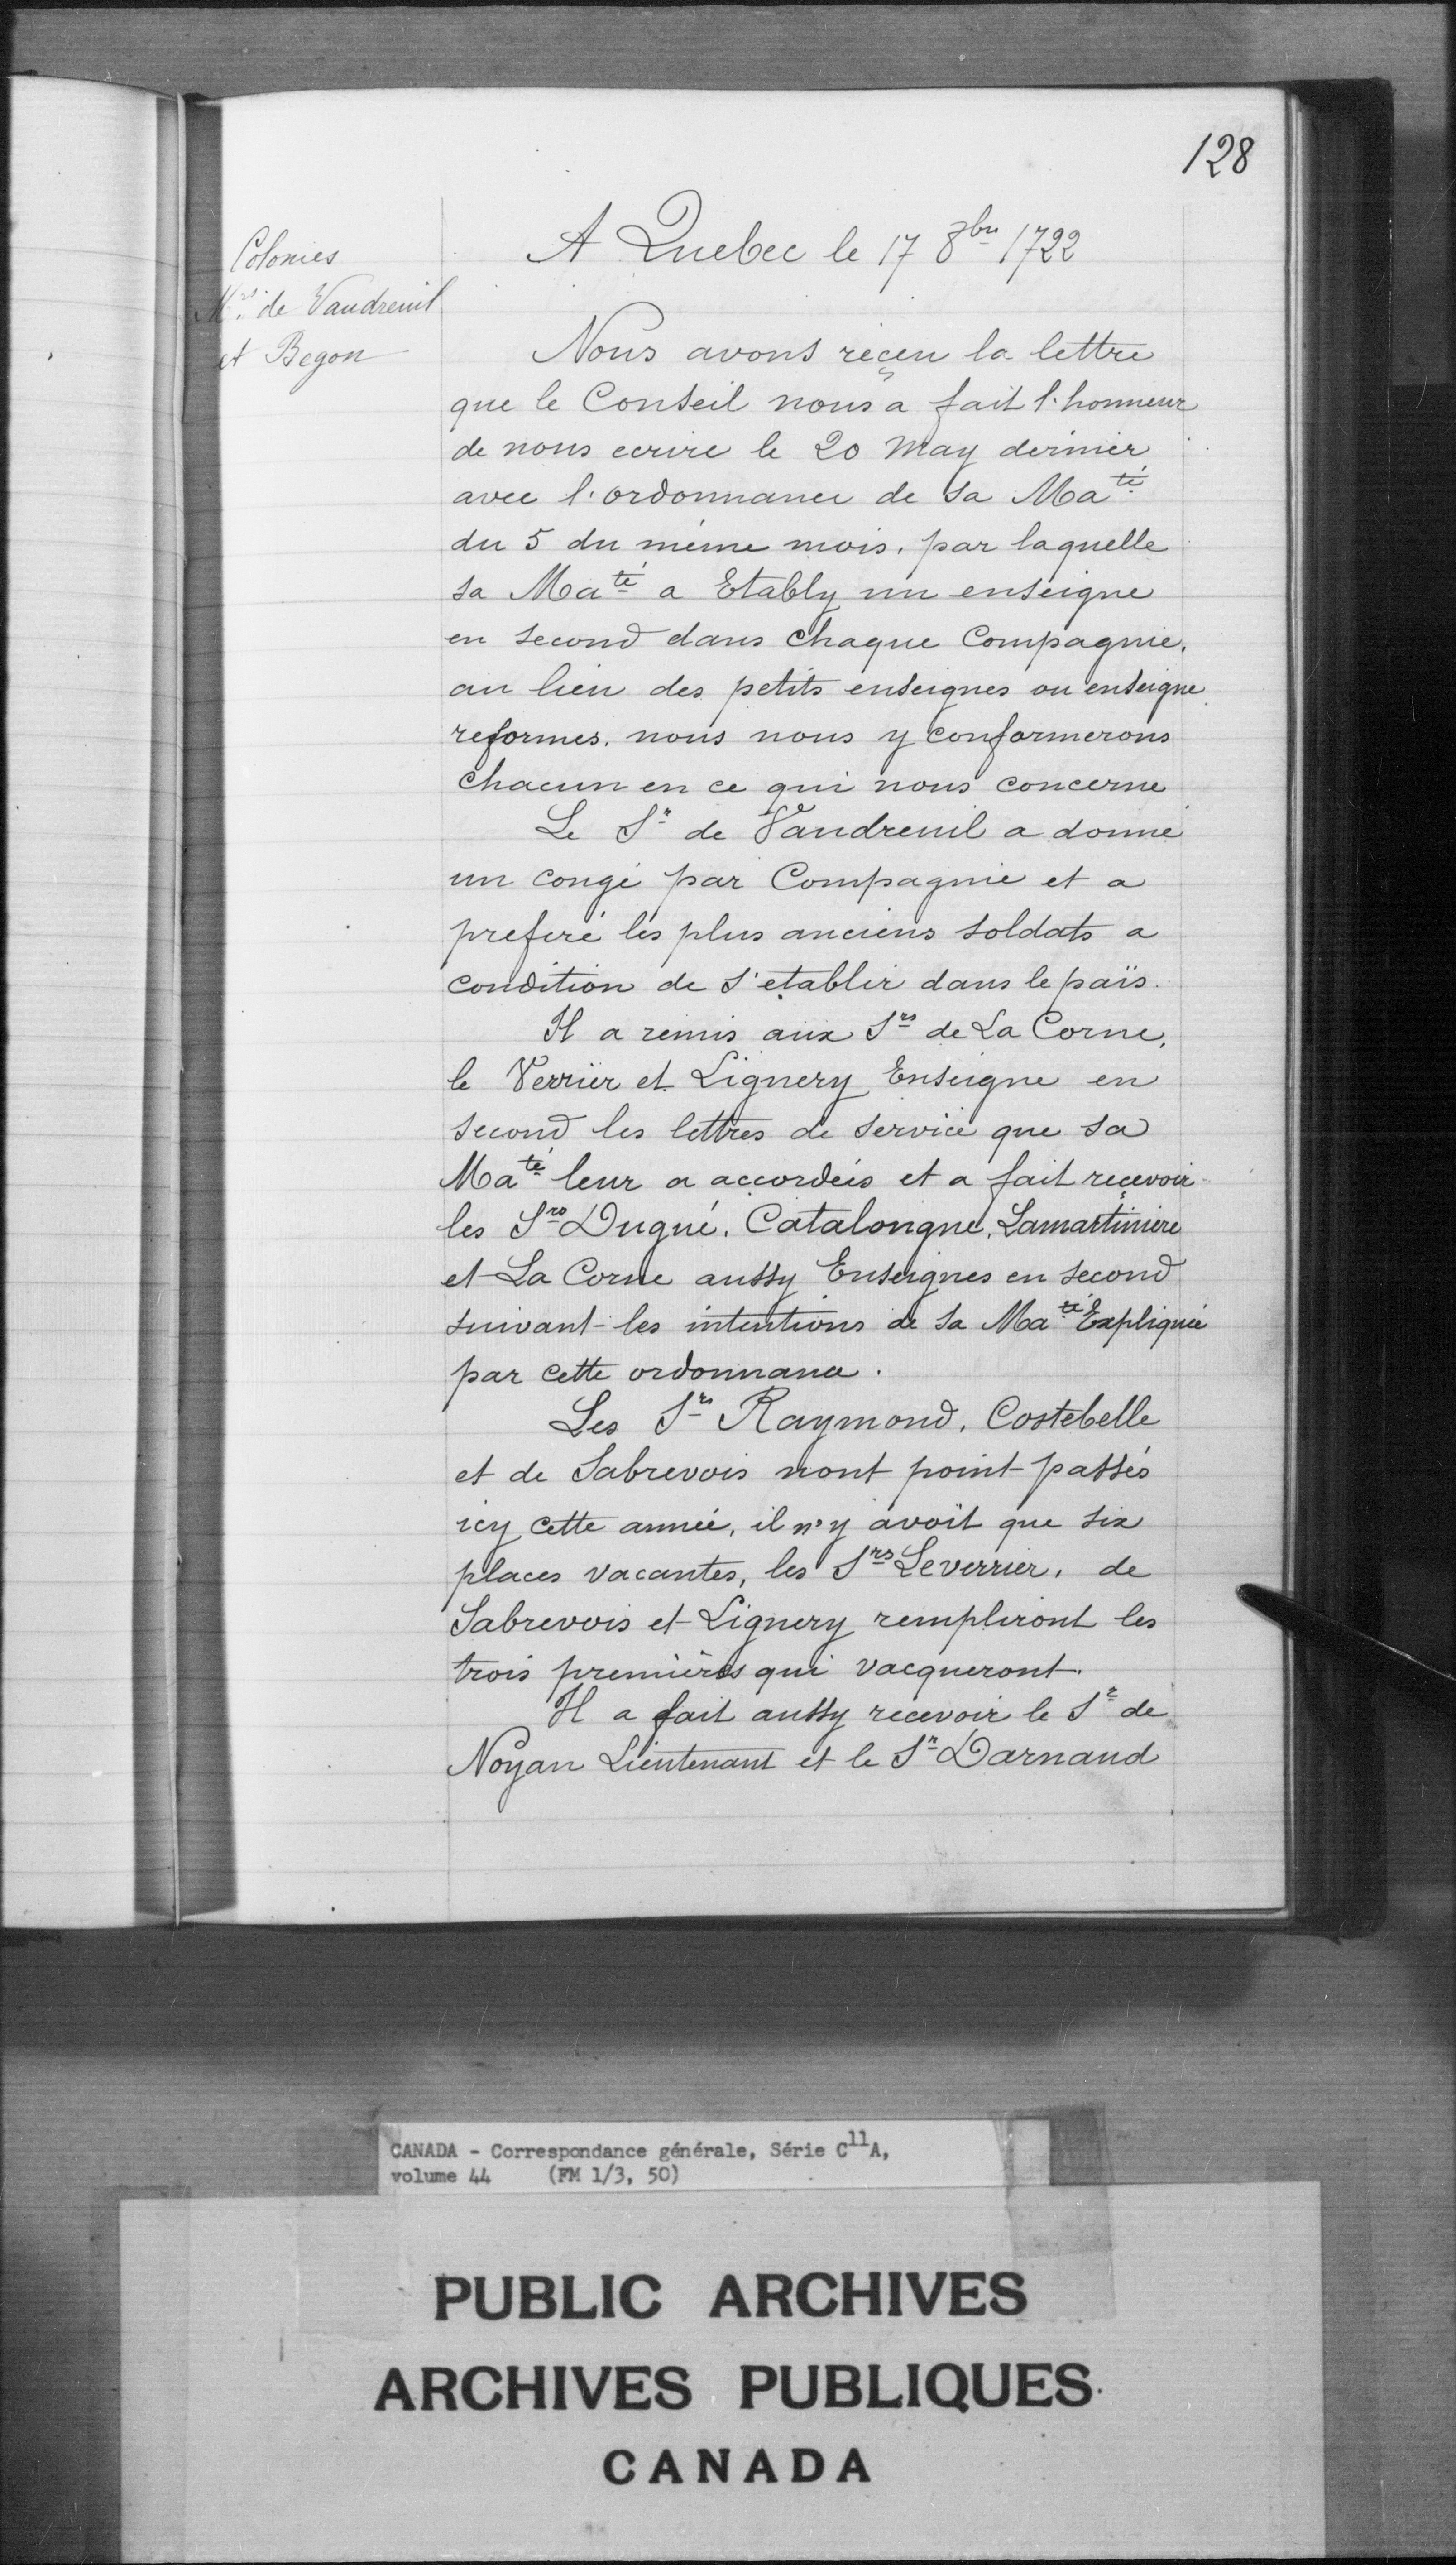 128
Colonies
Mrs. de Vaudreuil
et Begon
A Quebec le 17 8bre 1722
Nous avons reçeu la lettre
que le Conseil nous a fait l'honneur
de nous ecrire le 20 May dernier
avec l'ordonnance de sa Maté
du 5 du même mois, par laquelle
sa Maté a Etably un enseigne
en second dans chaque Compagnie,
au lieu des petits enseignes ou enseigne
reformes, nous nous y conformerons
chacun en ce qui nous concerne
Le Sr de Vaudreuil a donné
un congé par Compagnie et a
preferé les plus anciens soldats a
condition de s'etablir dans le païs.
Il a remis aux Srs de La Corne,
le Verrier et Lignery Enseigne en
second les lettres de service que sa
Maté leur a accordées et a fait reçevoir
les Srs Dugué, Catalongne, Lamartinière
et La Corne aussy Enseignes en second
suivant les intentions de sa Maté Expliquée
par cette ordonnance.
Les Srs Raymond, Costebelle
et de Sabrevois nont point passés
icy cette année, il n'y avoit que six
places vacantes, les Srs Leverrier, de
Sabrevois et Lignery rempliront les
trois premières qui vacqueront.
Il a fait aussy recevoir le Sr de
Noyan Lieutenant et le Sr Darnaud
CANADA - Correspondance générale, Série C11A,
volume 44 (FM 1/3, 50)
PUBLIC ARCHIVES
ARCHIVES PUBLIQUES
CANADA